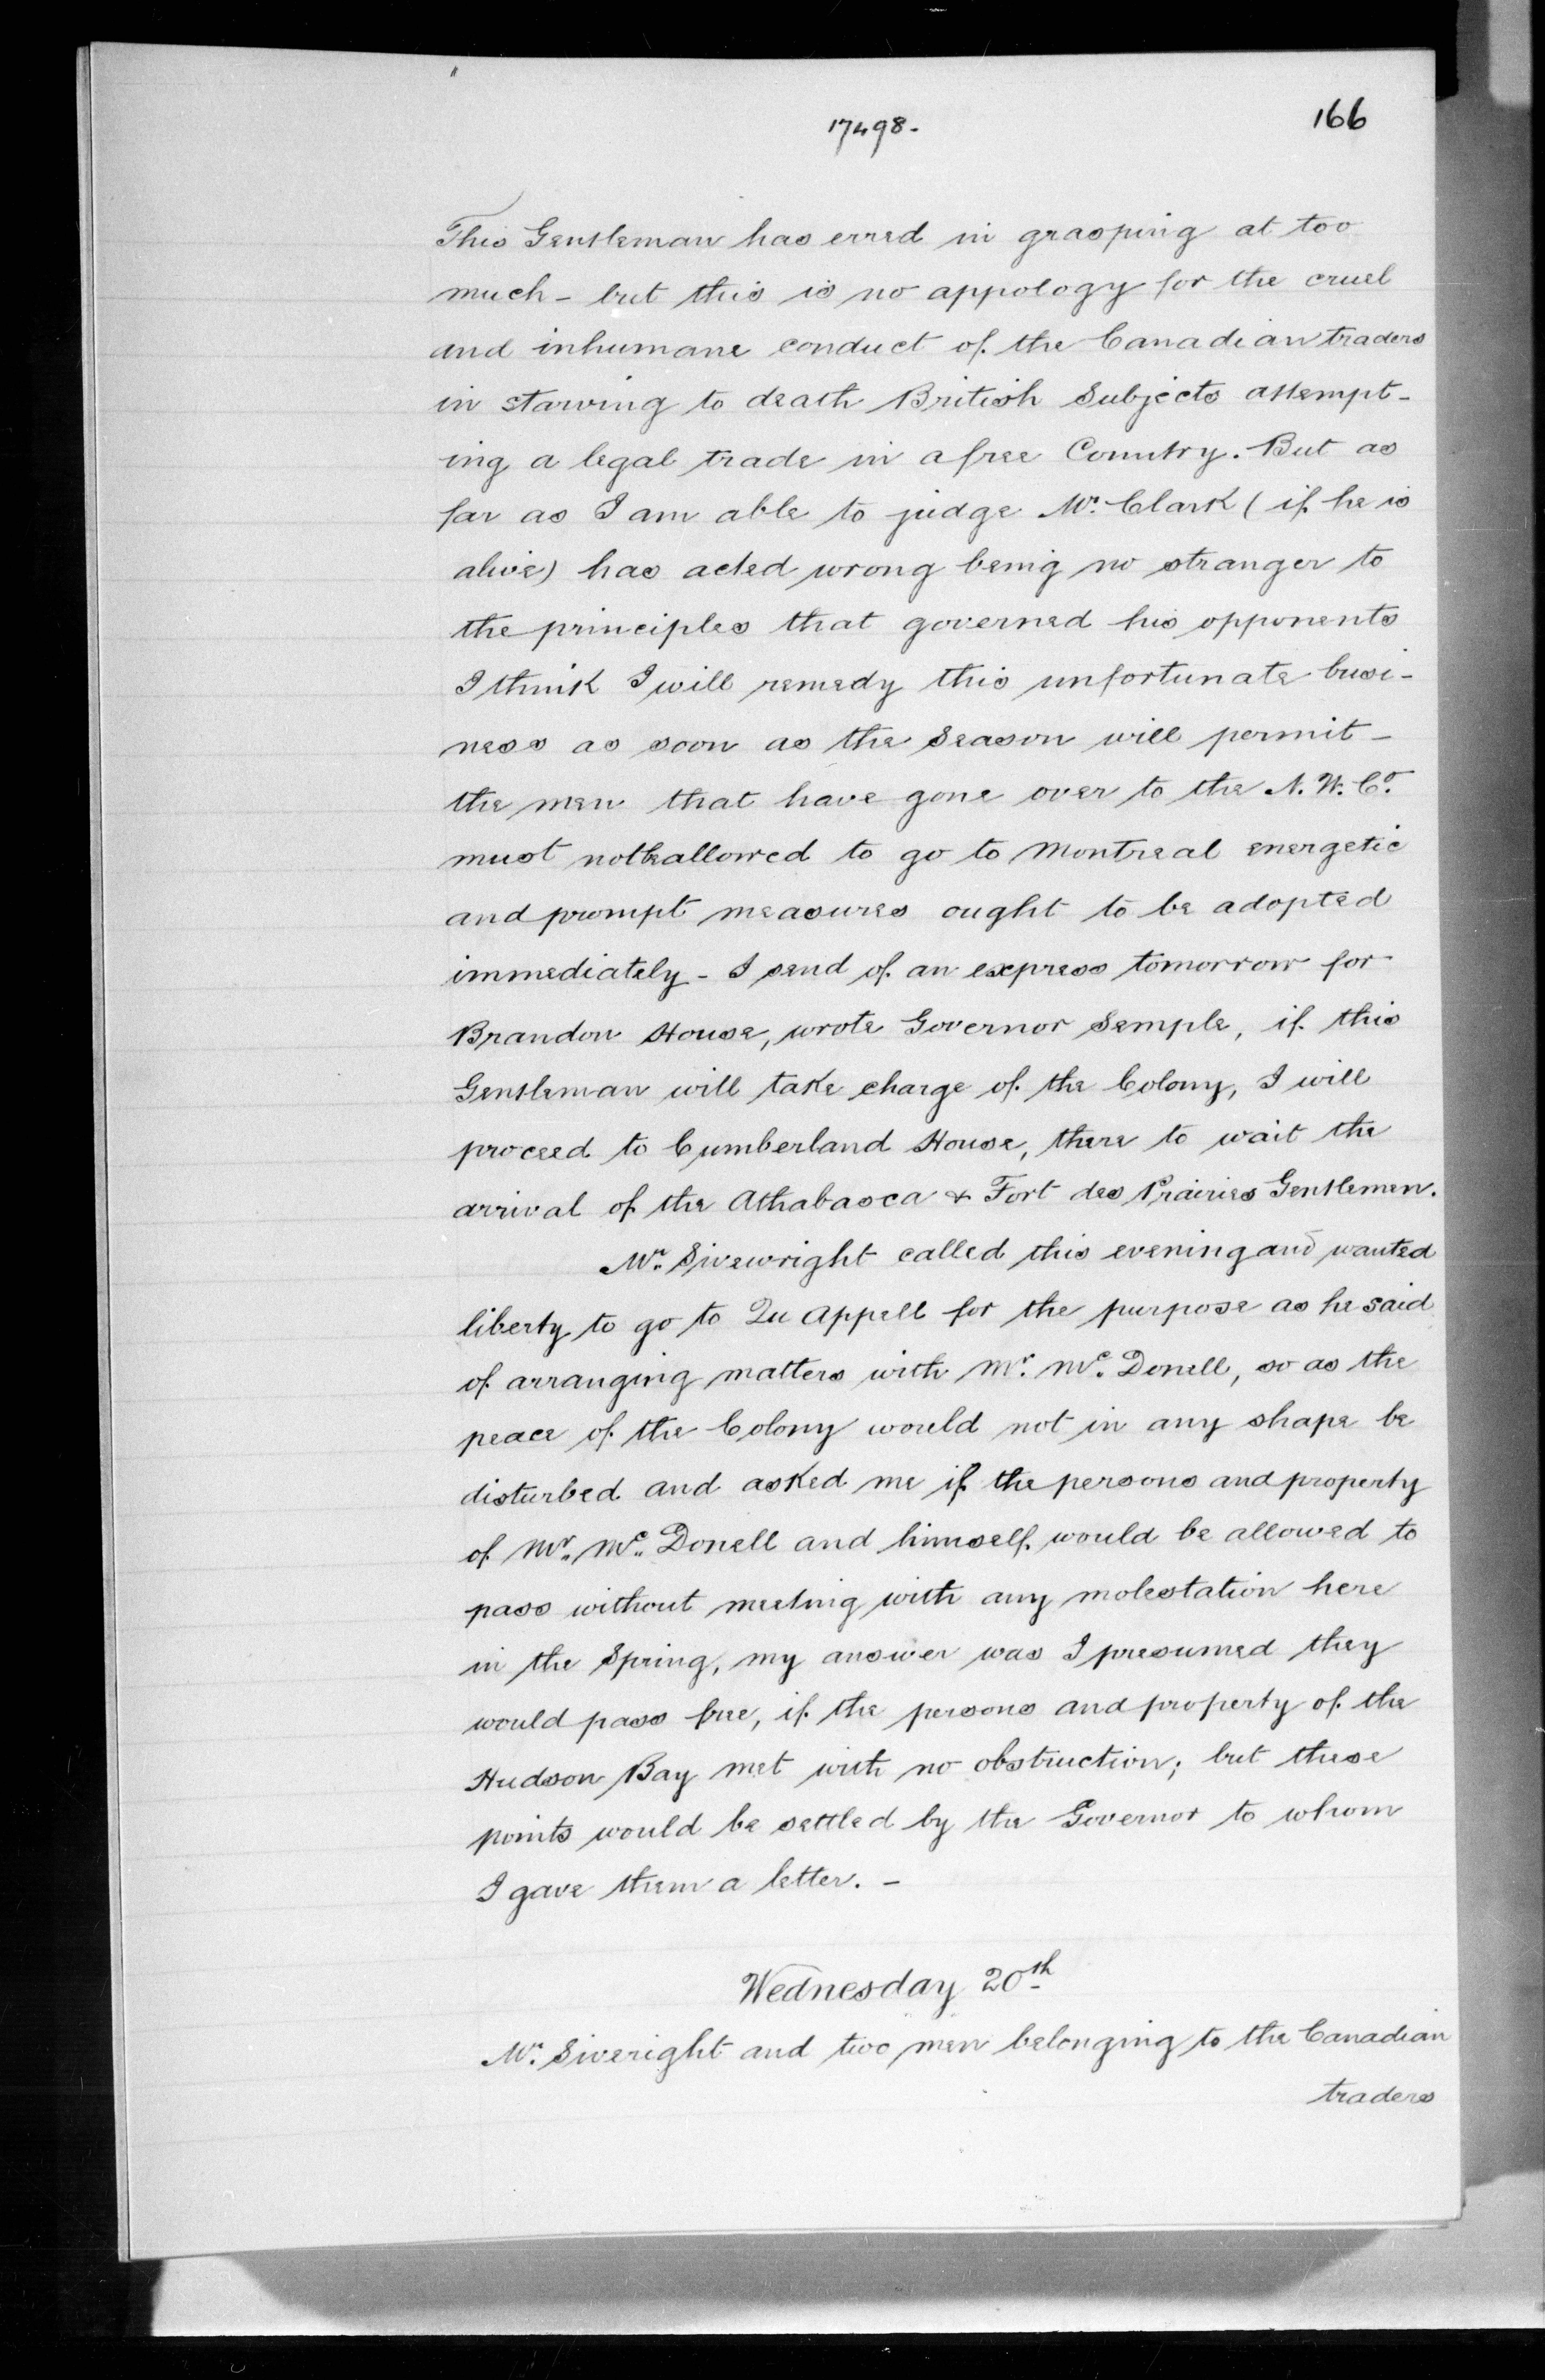 17498.
166
This Gentleman has erred in grasping at too
much - but this is no appology for the cruel
and inhumane conduct of the Canadian traders
in starving to death British Subjects attempt-
ing a legal trade in a free Country. But as
far as I am able to judge Mr. Clark (if he is
alive) has acted wrong being no stranger to
the principles that governed his opponents
I think I will remedy this unfortunate busi-
ness as soon as the Season will permit -
the men that have gone over to the N. W. Co.
must not be allowed to go to Montreal energetic
and prompt measures ought to be adopted
immediately - I send of an express tomorrow for
Brandon House, wrote Governor Semple, if this
Gentleman will take charge of the Colony, I will
proceed to Cumberland House, there to wait the
arrival of the Athabasca & Fort des Prairies Gentlemen.
Mr. Sivewright called this evening and wanted
liberty to go to Qu Appell for the purpose as he said
of arranging matters with Mr. Mc. Donell, so as the
peace of the Colony would not in any shape be
disturbed and asked me if the persons and property
of Mr. Mc. Donell and himself would be allowed to
pass without meeting with any molestation here
in the Spring, my answer was I presumed they
would pass free, if the persons and property of the
Hudson Bay met with no obstruction; but these
points would be settled by the Governor to whom
I gave them a letter. -
Wednesday 20th
Mr. Siveright and two men belonging to the Canadian
traders